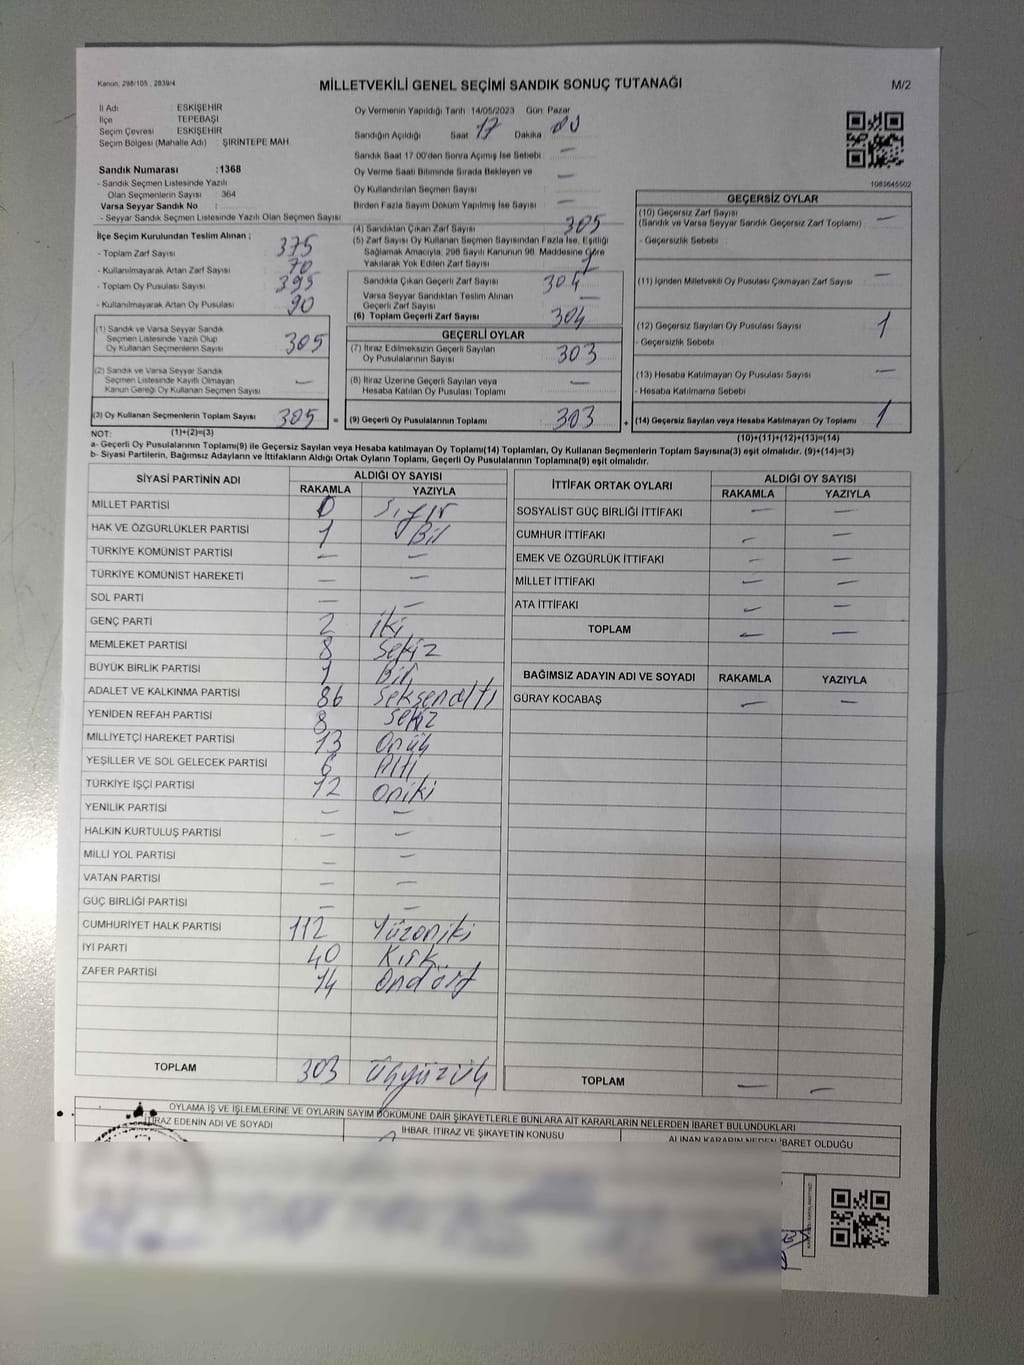 Kanun. 298/105 , 2839/4
MİLLETVEKİLİ GENEL SEÇİMİ SANDIK SONUÇ TUTANAĞI
M/2
İl Adı : ESKİŞEHİR
İlçe TEPEBAŞI
Seçim Çevresi : ESKİŞEHİR
Seçim Bölgesi (Mahalle Adı) : ŞİRİNTEPE MAH.
Sandık Numarası : 1368
- Sandık Seçmen Listesinde Yazılı
Olan Seçmenlerin Sayısı : 364
Varsa Seyyar Sandık No :
- Seyyar Sandık Seçmen Listesinde Yazılı Olan Seçmen Sayısı
Oy Vermenin Yapıldığı Tarih 14/05/2023 Gün Pazar
Sandığın Açıldığı Saat 17 Dakika 00
Sandık Saat 17.00'den Sonra Açılmış İse Sebebi : —
Oy Verme Saati Bitiminde Sırada Bekleyen ve
Oy Kullandırılan Seçmen Sayısı : —
Birden Fazla Sayım Döküm Yapılmış İse Sayısı : —
1083645502
İlçe Seçim Kurulundan Teslim Alınan ;
- Toplam Zarf Sayısı 375
- Kullanılmayarak Artan Zarf Sayısı 70
- Toplam Oy Pusulası Sayısı 395
- Kullanılmayarak Artan Oy Pusulası 90
(1) Sandık ve Varsa Seyyar Sandık
Seçmen Listesinde Yazılı Olup
Oy Kullanan Seçmenlerin Sayısı 305
(2) Sandık ve Varsa Seyyar Sandık
Seçmen Listesinde Kayıtlı Olmayan
Kanun Gereği Oy Kullanan Seçmen Sayısı —
(3) Oy Kullanan Seçmenlerin Toplam Sayısı 305 =
(1)+(2)=(3)
(4) Sandıktan Çıkan Zarf Sayısı 305
(5) Zarf Sayısı Oy Kullanan Seçmen Sayısından Fazla İse, Eşitliği
Sağlamak Amacıyla, 298 Sayılı Kanunun 98. Maddesine Göre
Yakılarak Yok Edilen Zarf Sayısı 1
Sandıkta Çıkan Geçerli Zarf Sayısı 304
Varsa Seyyar Sandıktan Teslim Alınan
Geçerli Zarf Sayısı —
(6) Toplam Geçerli Zarf Sayısı 304
GEÇERLİ OYLAR
(7) İtiraz Edilmeksizin Geçerli Sayılan
Oy Pusulalarının Sayısı 303
(8) İtiraz Üzerine Geçerli Sayılan veya
Hesaba Katılan Oy Pusulası Toplamı —
(9) Geçerli Oy Pusulalarının Toplamı 303 +
GEÇERSİZ OYLAR
(10) Geçersiz Zarf Sayısı
(Sandık ve Varsa Seyyar Sandık Geçersiz Zarf Toplamı) —
- Geçersizlik Sebebi :
(11) İçinden Milletvekili Oy Pusulası Çıkmayan Zarf Sayısı —
(12) Geçersiz Sayılan Oy Pusulası Sayısı 1
- Geçersizlik Sebebi :
(13) Hesaba Katılmayan Oy Pusulası Sayısı —
- Hesaba Katılmama Sebebi :
(14) Geçersiz Sayılan veya Hesaba Katılmayan Oy Toplamı 1
(10)+(11)+(12)+(13)=(14)
NOT:
a- Geçerli Oy Pusulalarının Toplamı(9) ile Geçersiz Sayılan veya Hesaba katılmayan Oy Toplamı(14) Toplamları, Oy Kullanan Seçmenlerin Toplam Sayısına(3) eşit olmalıdır. (9)+(14)=(3)
b- Siyasi Partilerin, Bağımsız Adayların ve İttifakların Aldığı Ortak Oyların Toplamı, Geçerli Oy Pusulalarının Toplamına(9) eşit olmalıdır.
SİYASİ PARTİNİN ADI ALDIĞI OY SAYISI
RAKAMLA YAZIYLA
MİLLET PARTİSİ 0 Sıfır
HAK VE ÖZGÜRLÜKLER PARTİSİ 1 Bir
TÜRKİYE KOMÜNİST PARTİSİ — —
TÜRKİYE KOMÜNİST HAREKETİ — —
SOL PARTİ — —
GENÇ PARTİ 2 iki
MEMLEKET PARTİSİ 8 Sekiz
BÜYÜK BİRLİK PARTİSİ 1 Bir
ADALET VE KALKINMA PARTİSİ 86 Seksenaltı
YENİDEN REFAH PARTİSİ 8 Sekiz
MİLLİYETÇİ HAREKET PARTİSİ 13 Onüç
YEŞİLLER VE SOL GELECEK PARTİSİ 6 Altı
TÜRKİYE İŞÇİ PARTİSİ 12 oniki
YENİLİK PARTİSİ — —
HALKIN KURTULUŞ PARTİSİ — —
MİLLİ YOL PARTİSİ — —
VATAN PARTİSİ — —
GÜÇ BİRLİĞİ PARTİSİ — —
CUMHURİYET HALK PARTİSİ 112 Yüzoniki
İYİ PARTİ 40 Kırk
ZAFER PARTİSİ 14 Ondört
TOPLAM 303 Üçyüzüç
İTTİFAK ORTAK OYLARI ALDIĞI OY SAYISI
RAKAMLA YAZIYLA
SOSYALİST GÜÇ BİRLİĞİ İTTİFAKI — —
CUMHUR İTTİFAKI — —
EMEK VE ÖZGÜRLÜK İTTİFAKI — —
MİLLET İTTİFAKI — —
ATA İTTİFAKI — —
TOPLAM — —
BAĞIMSIZ ADAYIN ADI VE SOYADI RAKAMLA YAZIYLA
GÜRAY KOCABAŞ — —
TOPLAM — —
OYLAMA İŞ VE İŞLEMLERİNE VE OYLARIN SAYIM DÖKÜMÜNE DAİR ŞİKAYETLERLE BUNLARA AİT KARARLARIN NELERDEN İBARET BULUNDUKLARI
İTİRAZ EDENİN ADI VE SOYADI İHBAR, İTİRAZ VE ŞİKAYETİN KONUSU ALINAN KARARIN NEDEN İBARET OLDUĞU